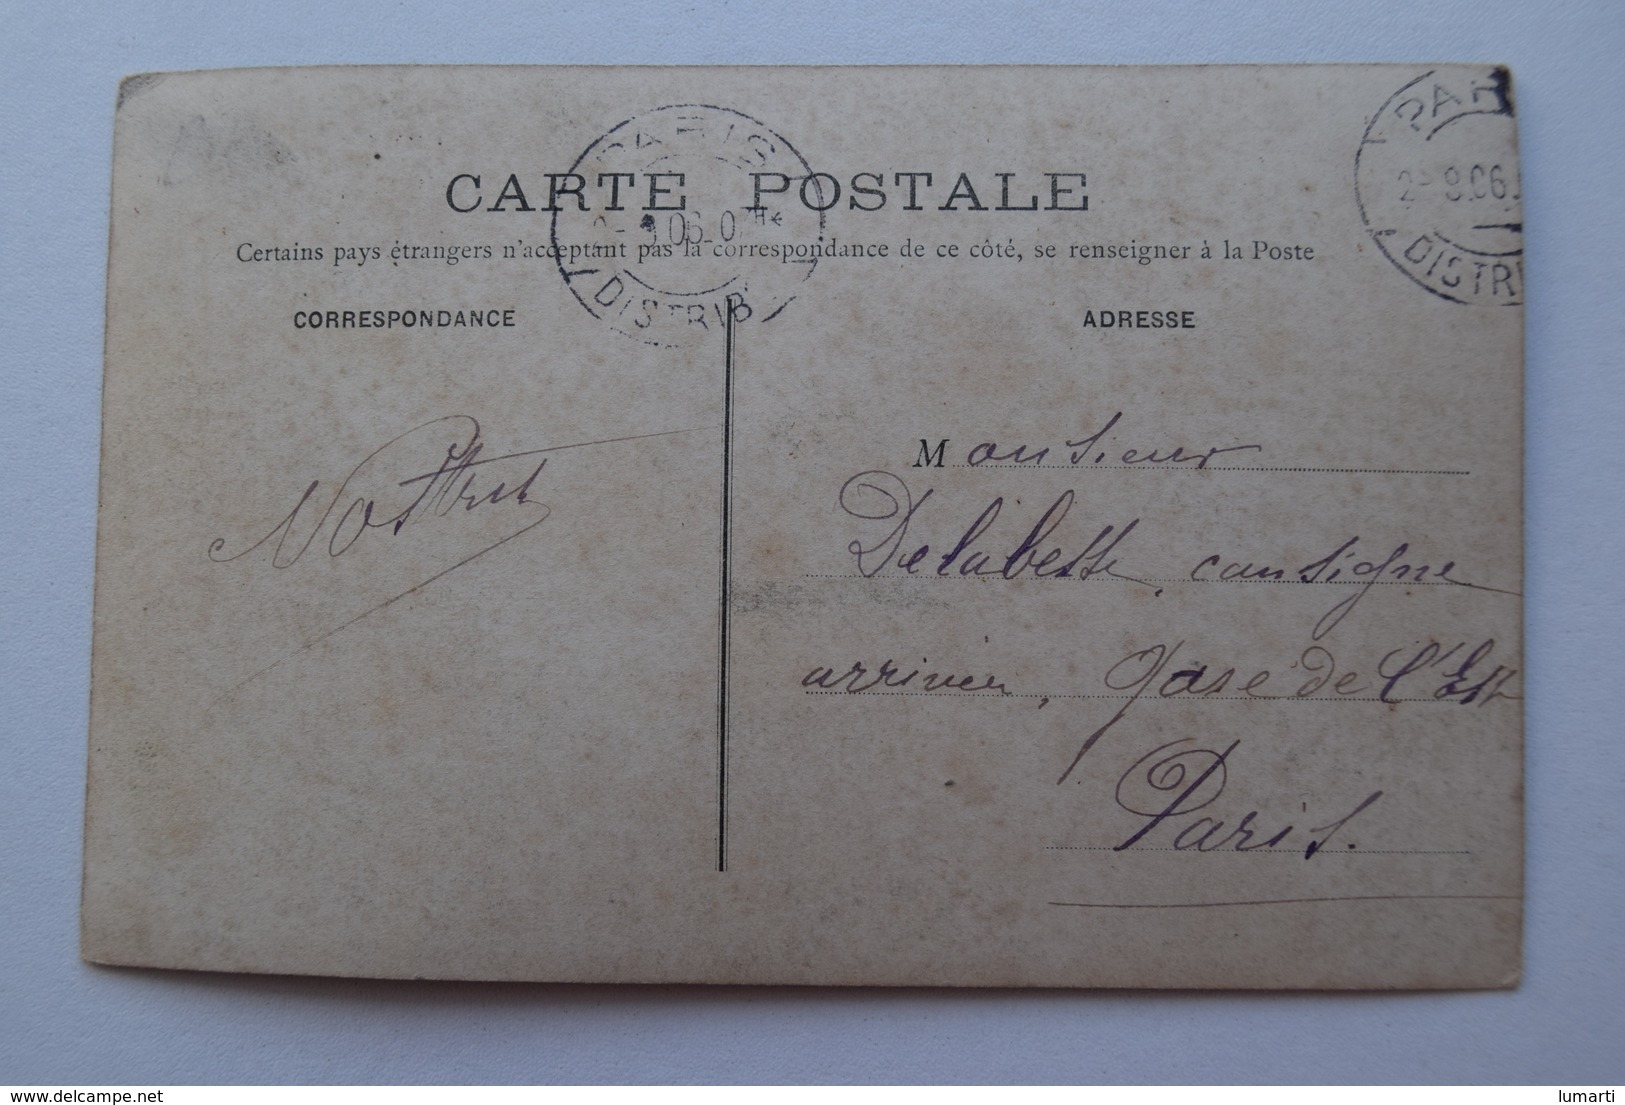 PARIS
DISTRIB
PAR
2-9.06
DISTRI
CARTE POSTALE
Certains pays étrangers n'acceptant pas la correspondance de ce côté, se renseigner à la Poste
CORRESPONDANCE
ADRESSE
Monsieur
Delabesse, consigne
arrivée, Gare de l'Est
Paris.
delcampe.net
lumarti